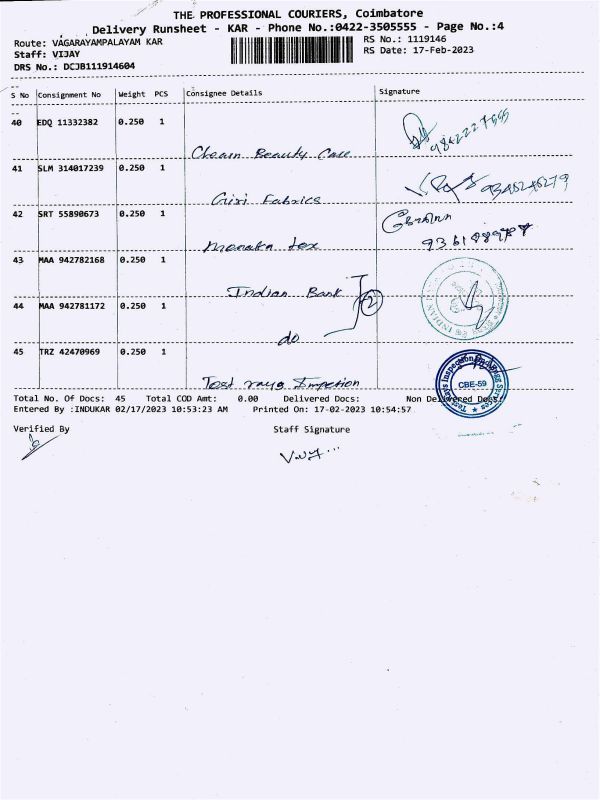 THE PROFESSIONAL COURIERS, Coimbatore
Delivery Runsheet - KAR - Phone No.:0422-3505555 - Page No.:4
Route: VAGARAYAMPALAYAM KAR
RS No.: 1119146
Staff: VIJAY
RS Date: 17-Feb-2023
DRS No.: DCJB111914604
S No Consignment No Weight PCS Consignee Details Signature
40 EDQ 11332382 0.250 1
9842227555
Beauty Care
41 SLM 314017239 0.250 1
Giri Fabrics
42 SRT 55890673 0.250 1
Menaka tex
43 MAA 942782168 0.250 1
Indian Bank 2
44 MAA 942781172 0.250 1
do
45 TRZ 42470969 0.250 1
Test rays
CBE-59
Total No. Of Docs: 45 Total COD Amt: 0.00 Delivered Docs: Non Delivered Docs:
Entered By :INDUKAR 02/17/2023 10:53:23 AM Printed On: 17-02-2023 10:54:57
Verified By Staff Signature